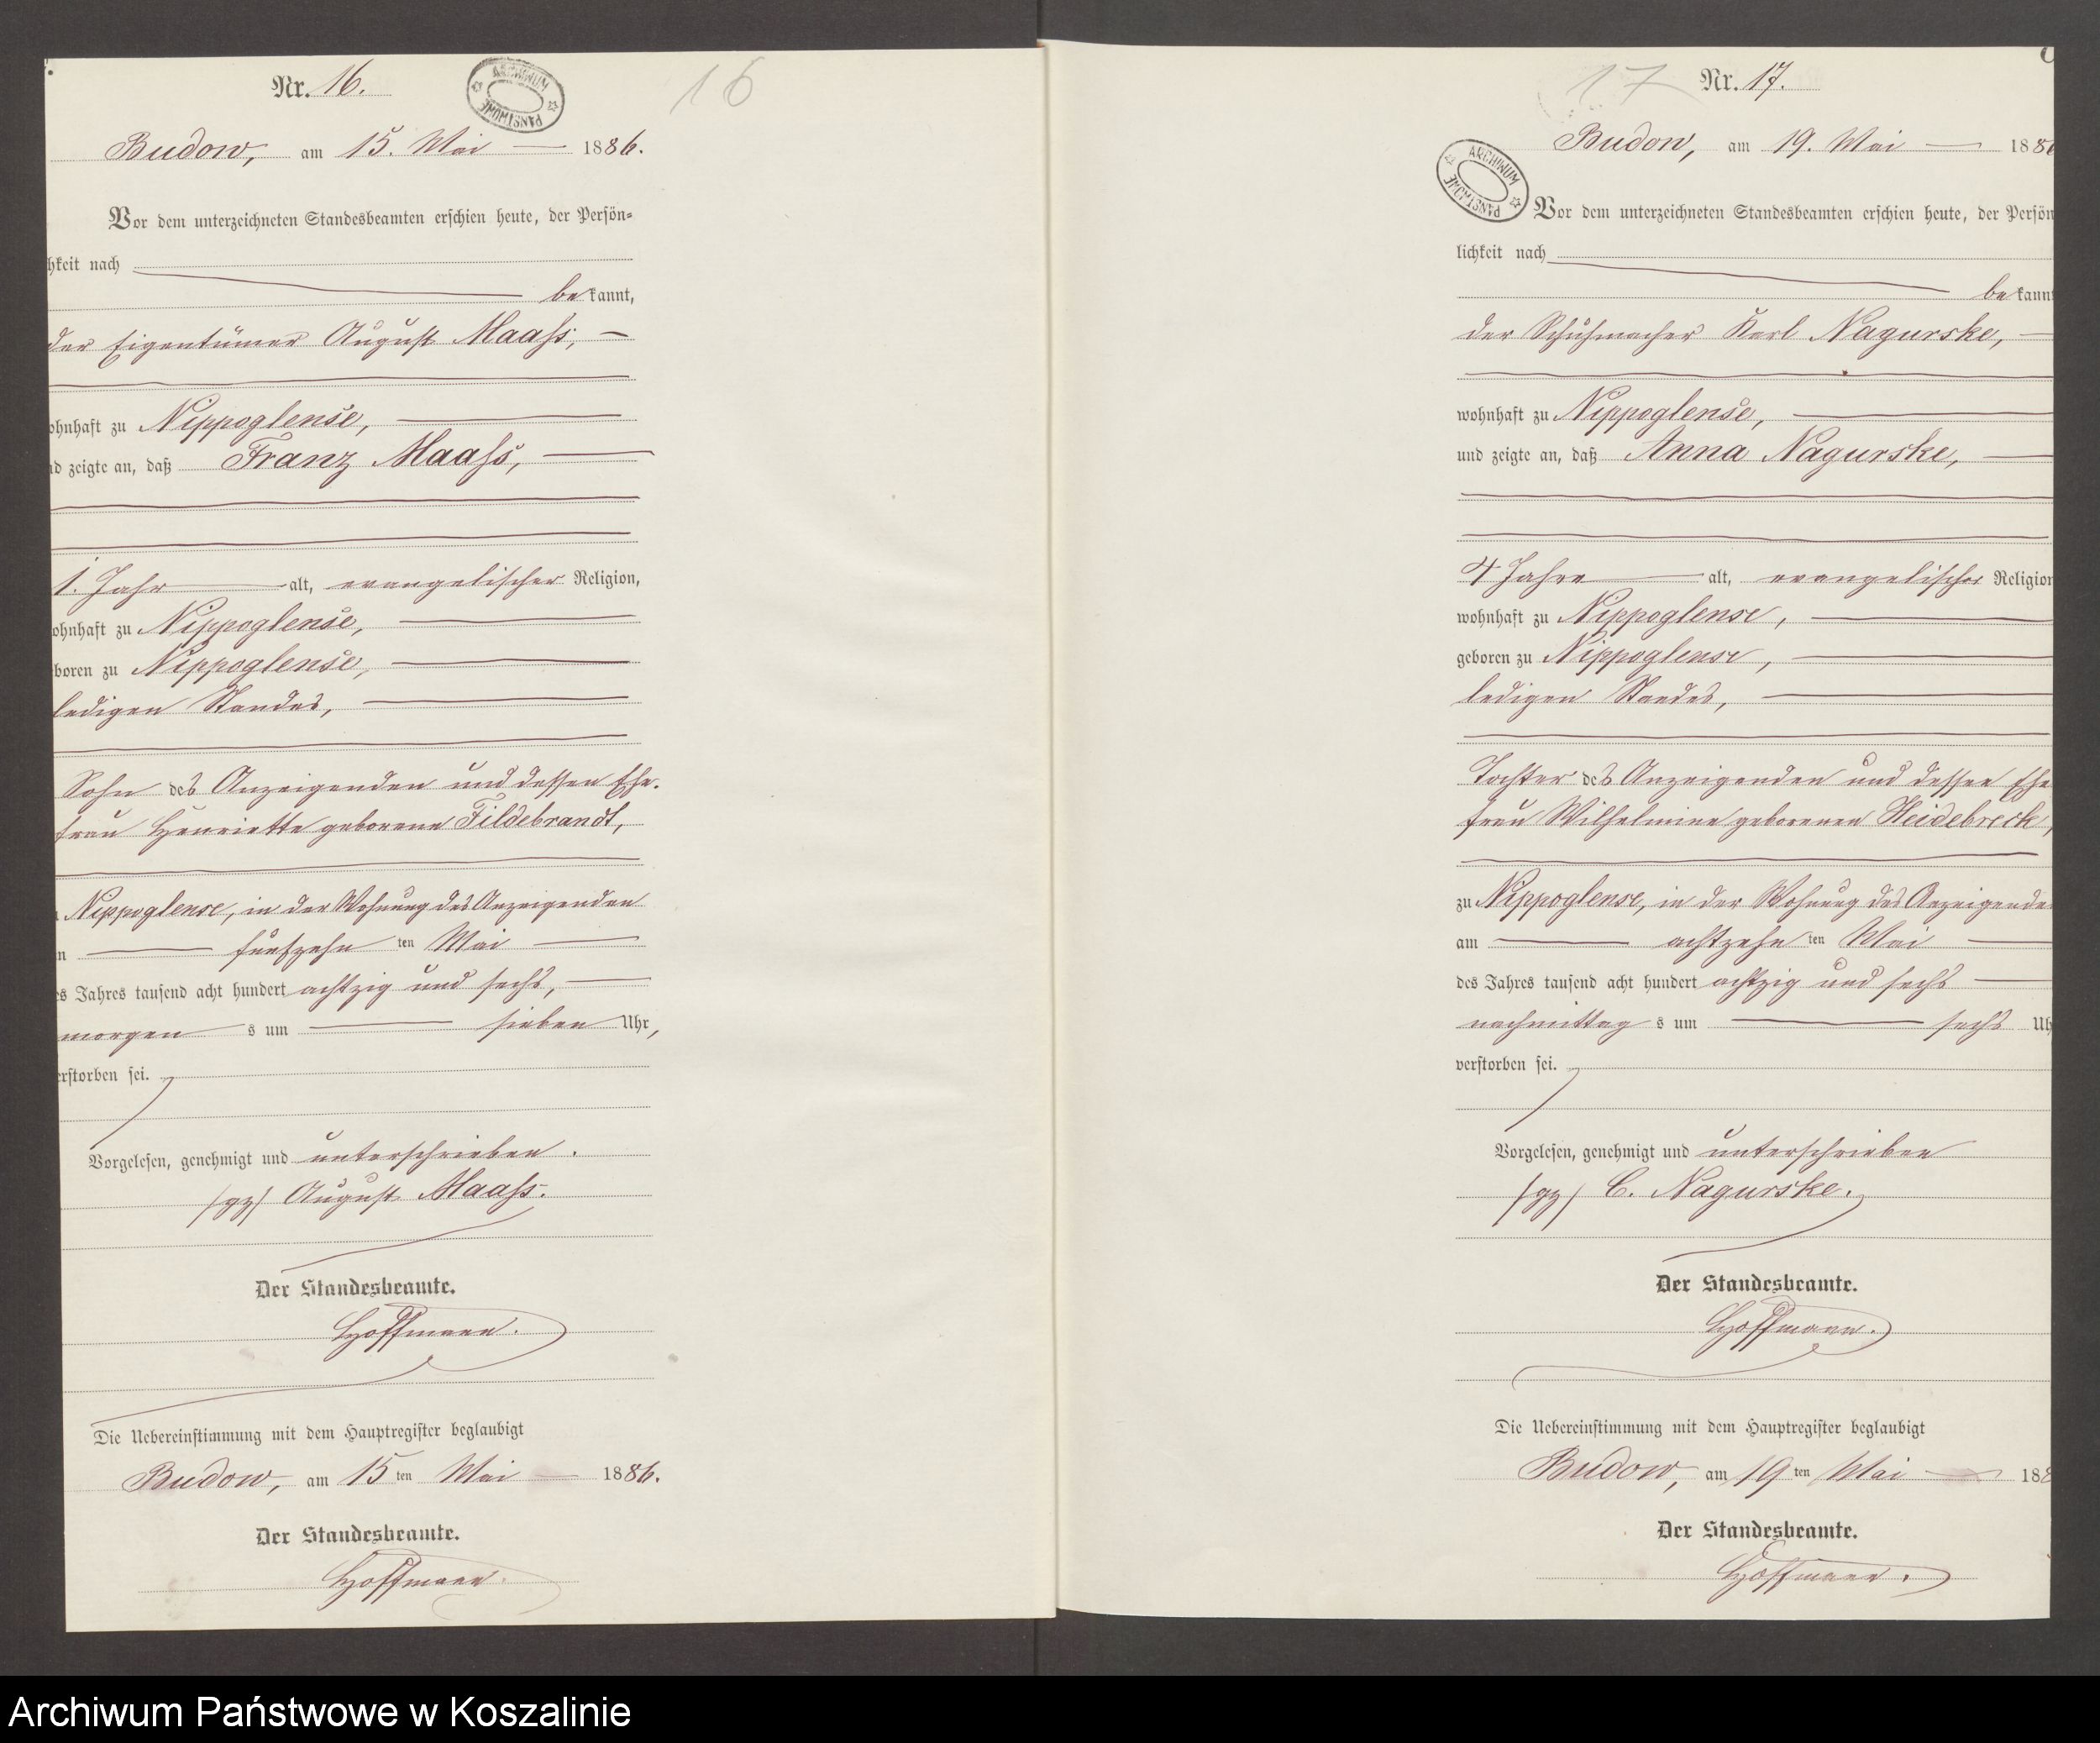 Nr. 16.
16
ARCHIWUM PAŃSTWOWE
Budow, am 15. Mai 1886.
Vor dem unterzeichneten Standesbeamten erschien heute, der Persön-
hkeit nach
bekannt,
der Eigentümer August Maaß,
ohnhaft zu Nippoglense,
nd zeigte an, daß Franz Maaß,
1. Jahr alt, evangelischer Religion,
ohnhaft zu Nippoglense,
boren zu Nippoglense,
ledigen Standes,
Sohn des Anzeigenden und dessen Ehe-
frau Henriette geborene Fildebrandt,
Nippoglense, in der Wohnung des Anzeigenden
m fünfzehnten Mai
es Jahres tausend acht hundert achtzig und sechs,
morgens um sieben Uhr,
erstorben sei.
Vorgelesen, genehmigt und unterschrieben.
/gz/ August Maaß.
Der Standesbeamte.
Hoffmann.
Die Uebereinstimmung mit dem Hauptregister beglaubigt
Budow, am 15ten Mai 1886.
Der Standesbeamte.
Hoffmann.
17
Nr. 17.
ARCHIWUM PAŃSTWOWE
Budow, am 19. Mai 1886
Vor dem unterzeichneten Standesbeamten erschien heute, der Persön
lichkeit nach
bekann
der Schuhmacher Karl Nagurske,
wohnhaft zu Nippoglense,
und zeigte an, daß Anna Nagurske,
4 Jahre alt, evangelischer Religion
wohnhaft zu Nippoglense,
geboren zu Nippoglense,
ledigen Standes,
Tochter des Anzeigenden und dessen Ehe
frau Wilhelmine geborenen Heidebreck,
zu Nippoglense, in der Wohnung des Anzeigende
am achtzehnten Mai
des Jahres tausend acht hundert achtzig und sechs
nachmittags um sechs Uh
verstorben sei.
Vorgelesen, genehmigt und unterschrieben
/gz/ C. Nagurske.
Der Standesbeamte.
Hoffmann.
Die Uebereinstimmung mit dem Hauptregister beglaubigt
Budow, am 19ten Mai 188
Der Standesbeamte.
Hoffmann.
Archiwum Państwowe w Koszalinie